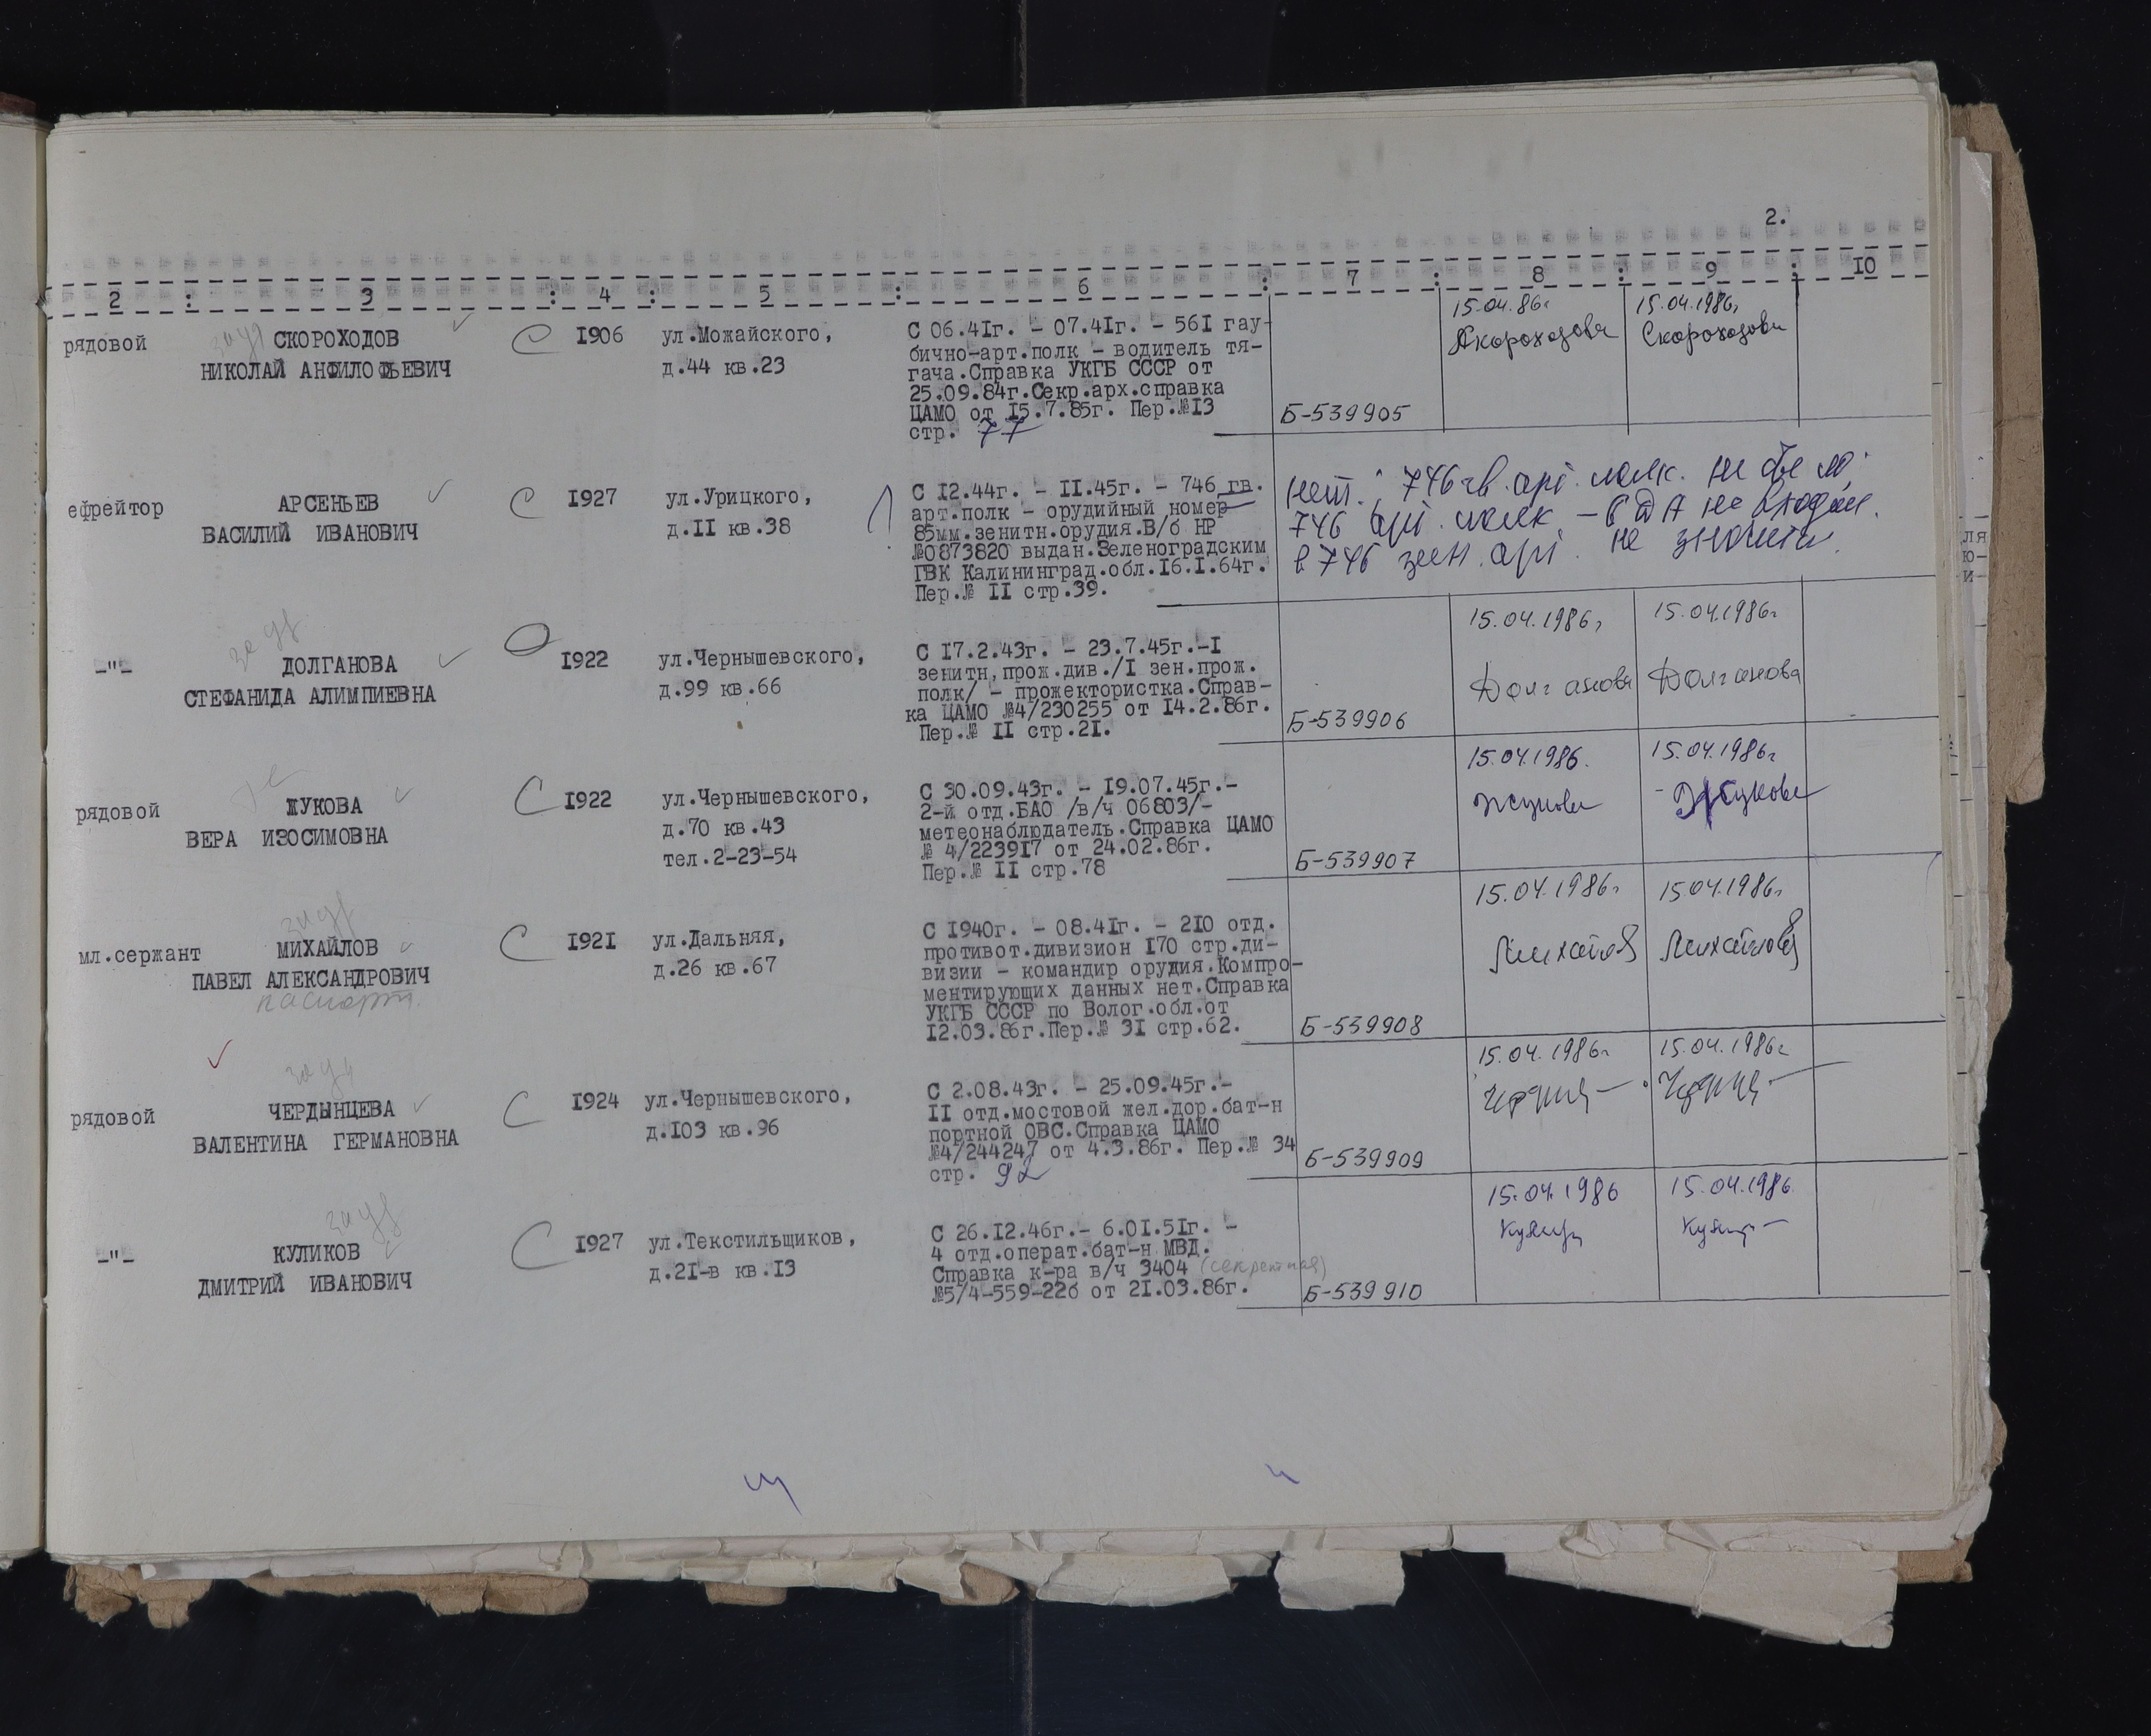 2.
2 : 3 : 4 : 5 : 6 : 7 : 8 : 9 : IO
рядовой
СКОРОХОДОВ
НИКОЛАЙ АНФИЛОФЬЕВИЧ
I906
ул.Можайского,
д.44 кв.23
С 06.4Iг. - 07.4Iг. - 56I гау-
бично-арт.полк - водитель тя-
гача.Справка УКГБ СССР от
25.09.84г.Секр.арх.справка
ЦАМО от I5.7.85г. Пер.№I3
стр. 77
Б-539905
15.04.86г
Скороходова
15.04.1986г
Скороходова
ефрейтор
АРСЕНЬЕВ
ВАСИЛИЙ ИВАНОВИЧ
I927
ул.Урицкого,
д.II кв.38
С I2.44г. - II.45г. - 746 гв.
арт.полк - орудийный номер
85мм.зенитн.орудия.В/б НР
№0873820 выдан.Зеленоградским
ГВК Калининград.обл.I6.I.64г.
Пер.№ II стр.39.
нет. 746 гв. арт. полк. не было.
746 арт. полк - в ДА не входил.
в 746 зен. арт. не значится.
-"-
ДОЛГАНОВА
СТЕФАНИДА АЛИМПИЕВНА
I922
ул.Чернышевского,
д.99 кв.66
С I7.2.43г. - 23.7.45г.-I
зенитн,прож.див./I зен.прож.
полк/ - прожектористка.Справ-
ка ЦАМО №4/230255 от I4.2.86г.
Пер.№ II стр.2I.
Б-539906
15.04.1986г
Долганова
15.04.1986г
Долганова
рядовой
ЖУКОВА
ВЕРА ИЗОСИМОВНА
I922
ул.Чернышевского,
д.70 кв.43
тел.2-23-54
С 30.09.43г. - I9.07.45г.-
2-й отд.БАО /в/ч 06803/-
метеонаблюдатель.Справка ЦАМО
№ 4/2239I7 от 24.02.86г.
Пер.№ II стр.78
Б-539907
15.04.1986.
Жукова
15.04.1986г
Жукова
мл.сержант
МИХАЙЛОВ
ПАВЕЛ АЛЕКСАНДРОВИЧ
паспорт.
I92I
ул.Дальняя,
д.26 кв.67
С I940г. - 08.4Iг. - 2I0 отд.
противот.дивизион I70 стр.ди-
визии - командир орудия.Компро-
ментирующих данных нет.Справка
УКГБ СССР по Волог.обл.от
I2.03.86г.Пер.№ 3I стр.62.
Б-539908
15.04.1986г
Михайлов
15.04.1986г
Михайлов
рядовой
ЧЕРДЫНЦЕВА
ВАЛЕНТИНА ГЕРМАНОВНА
I924
ул.Чернышевского,
д.I03 кв.96
С 2.08.43г. - 25.09.45г.-
II отд.мостовой жел.дор.бат-н
портной ОВС.Справка ЦАМО
№4/244247 от 4.3.86г. Пер.№ 34
стр. 92
Б-539909
15.04.1986г
15.04.1986г
-"-
КУЛИКОВ
ДМИТРИЙ ИВАНОВИЧ
I927
ул.Текстильщиков,
д.2I-в кв.I3
С 26.I2.46г.- 6.0I.5Iг. -
4 отд.операт.бат-н МВД.
Справка к-ра в/ч 3404 (секретная)
№5/4-559-22б от 2I.03.86г.
Б-539910
15.04.1986
15.04.1986
ля
ю-
и-